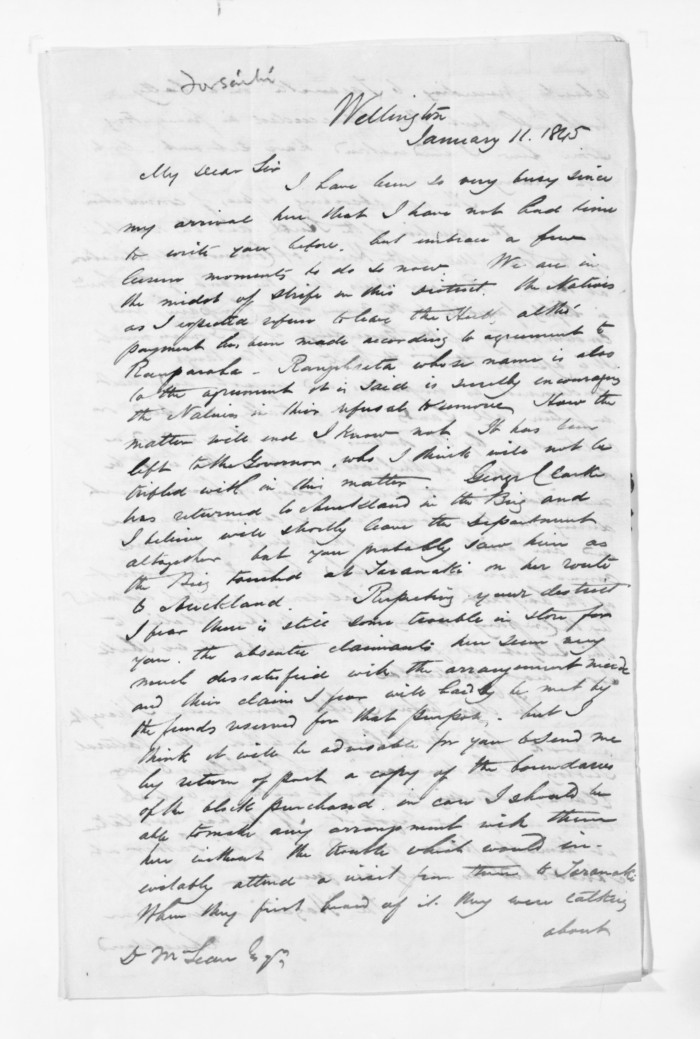 Wellington
January 11. 1845
My Dear Sir
I have been so very busy since
my arrival here that I have not had time
to write you before, but embrace a few
leisure moments to do so now. We are in
the midst of strife in this District. The Natives
as I expected refuse to leave the Hutt altho'
payment has been made according to agreement to
Rauparaha - Rangihaeata whose name is also
to the agreement it is said is secretly encouraging
the Natives in this refusal to remove. How the
matter will end I know not. It has been
left to the Governor, who I think will not be
trifled with in this matter. George Clarke
has returned to Auckland in the Brig and
I believe will shortly leave the Department
altogether but you probably saw him as
the Brig touched at Taranaki on her route
to Auckland. Respecting your district
I fear there is still some trouble in store for
you. The absentee claimants here seem very
much dissatisfied with the arrangement made
and their claims I fear will hardly be met by
the funds reserved for that purpose, - but I
think it will be advisable for you to send me
by return of post a copy of the boundaries
of the block purchased in case I should be
able to make any arrangement with them
here without the trouble which would in-
evitably attend a visit from them to Taranaki
When they first heard of it they were talking
about
D McLean Esqr